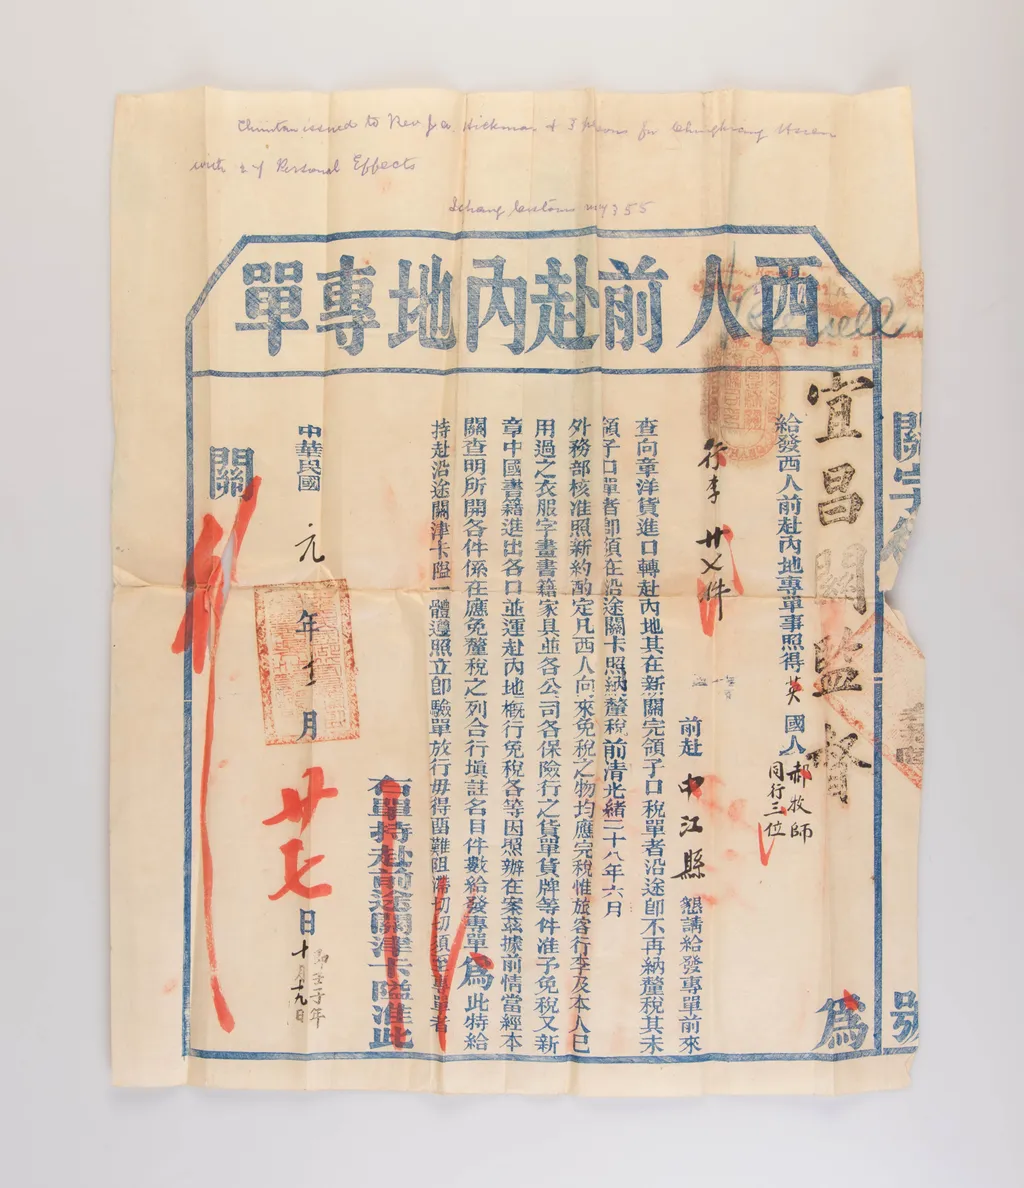 issued to Rev J. A. Hickman + 3 persons for Chungkiang Hsien
with 24 Personal Effects
Ichang Customs 355
西人前赴內地專單
關字第
號
宜昌關監督
為
給發西人前赴內地專單事照得英國人郝牧師
同行三位
前赴中江縣懇請給發專單前來
行李廿〤件
查向章洋貨進口轉赴內地其在新關完領子口稅單者沿途卽不再納釐稅其未
領子口單者卽須在沿途關卡照納釐稅前清光緒二十八年六月
外務部核准照新約酌定凡西人向來免稅之物均應完稅惟旅客行李及本人已
用過之衣服字畫書籍家具並各公司各保險行之貨單貨牌等件准予免稅又新
章中國書籍進出各口並運赴內地槪行免稅各等因照辦在案茲據前情當經本
關查明所開各件係在應免釐稅之列合行塡註名目件數給發專單爲此特給
持赴沿途關津卡隘一體遵照立卽驗單放行毋得留難阻滯切切須至專單者
右單持赴前途關津卡隘准此
中華民國元年十二月廿七日
卽壬子年
十一月十九日
關